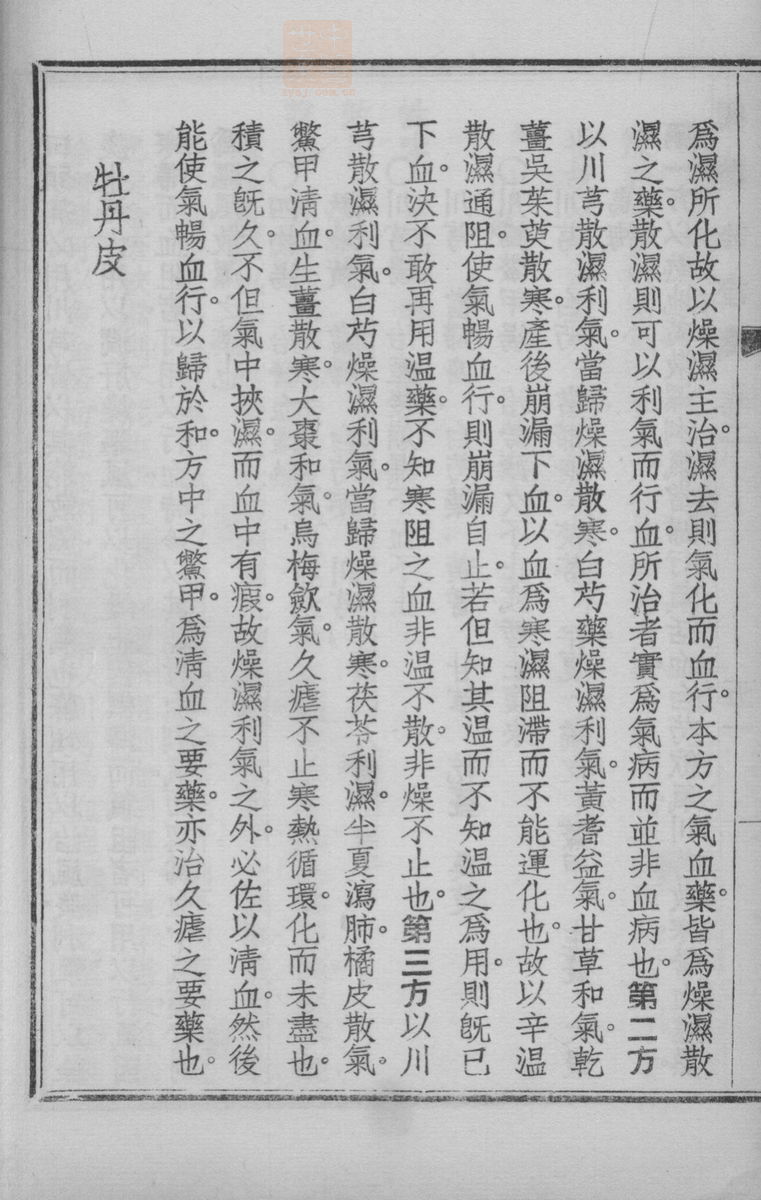 爲濕所化故以燥濕主治。濕去則氣化而血行。本方之氣血藥。皆爲燥濕散
濕之藥。散濕則可以利氣而行血。所治者實爲氣病而並非血病也。第二方
以川芎散濕利氣。當歸燥濕散寒。白芍藥燥濕利氣。黃耆益氣。甘草和氣。乾
薑吳茱萸散寒。產後崩漏下血。以血爲寒濕阻滯而不能運化也。故以辛溫
散濕通阻。使氣暢血行。則崩漏自止。若但知其温而不知温之爲用。則旣已
下血。決不敢再用温藥。不知寒阻之血非温不散。非燥不止也。第三方以川
芎散濕利氣。白芍燥濕利氣。當歸燥濕散寒。茯苓利濕。半夏瀉肺。橘皮散氣。
鱉甲淸血。生薑散寒。大棗和氣。烏梅歛氣。久瘧不止寒熱循環。化而未盡也。
積之旣久。不但氣中挾濕。而血中有瘕。故燥濕利氣之外。必佐以淸血。然後
能使氣暢血行。以歸於和。方中之鱉甲。爲淸血之要藥。亦治久瘧之要藥也。
牡丹皮